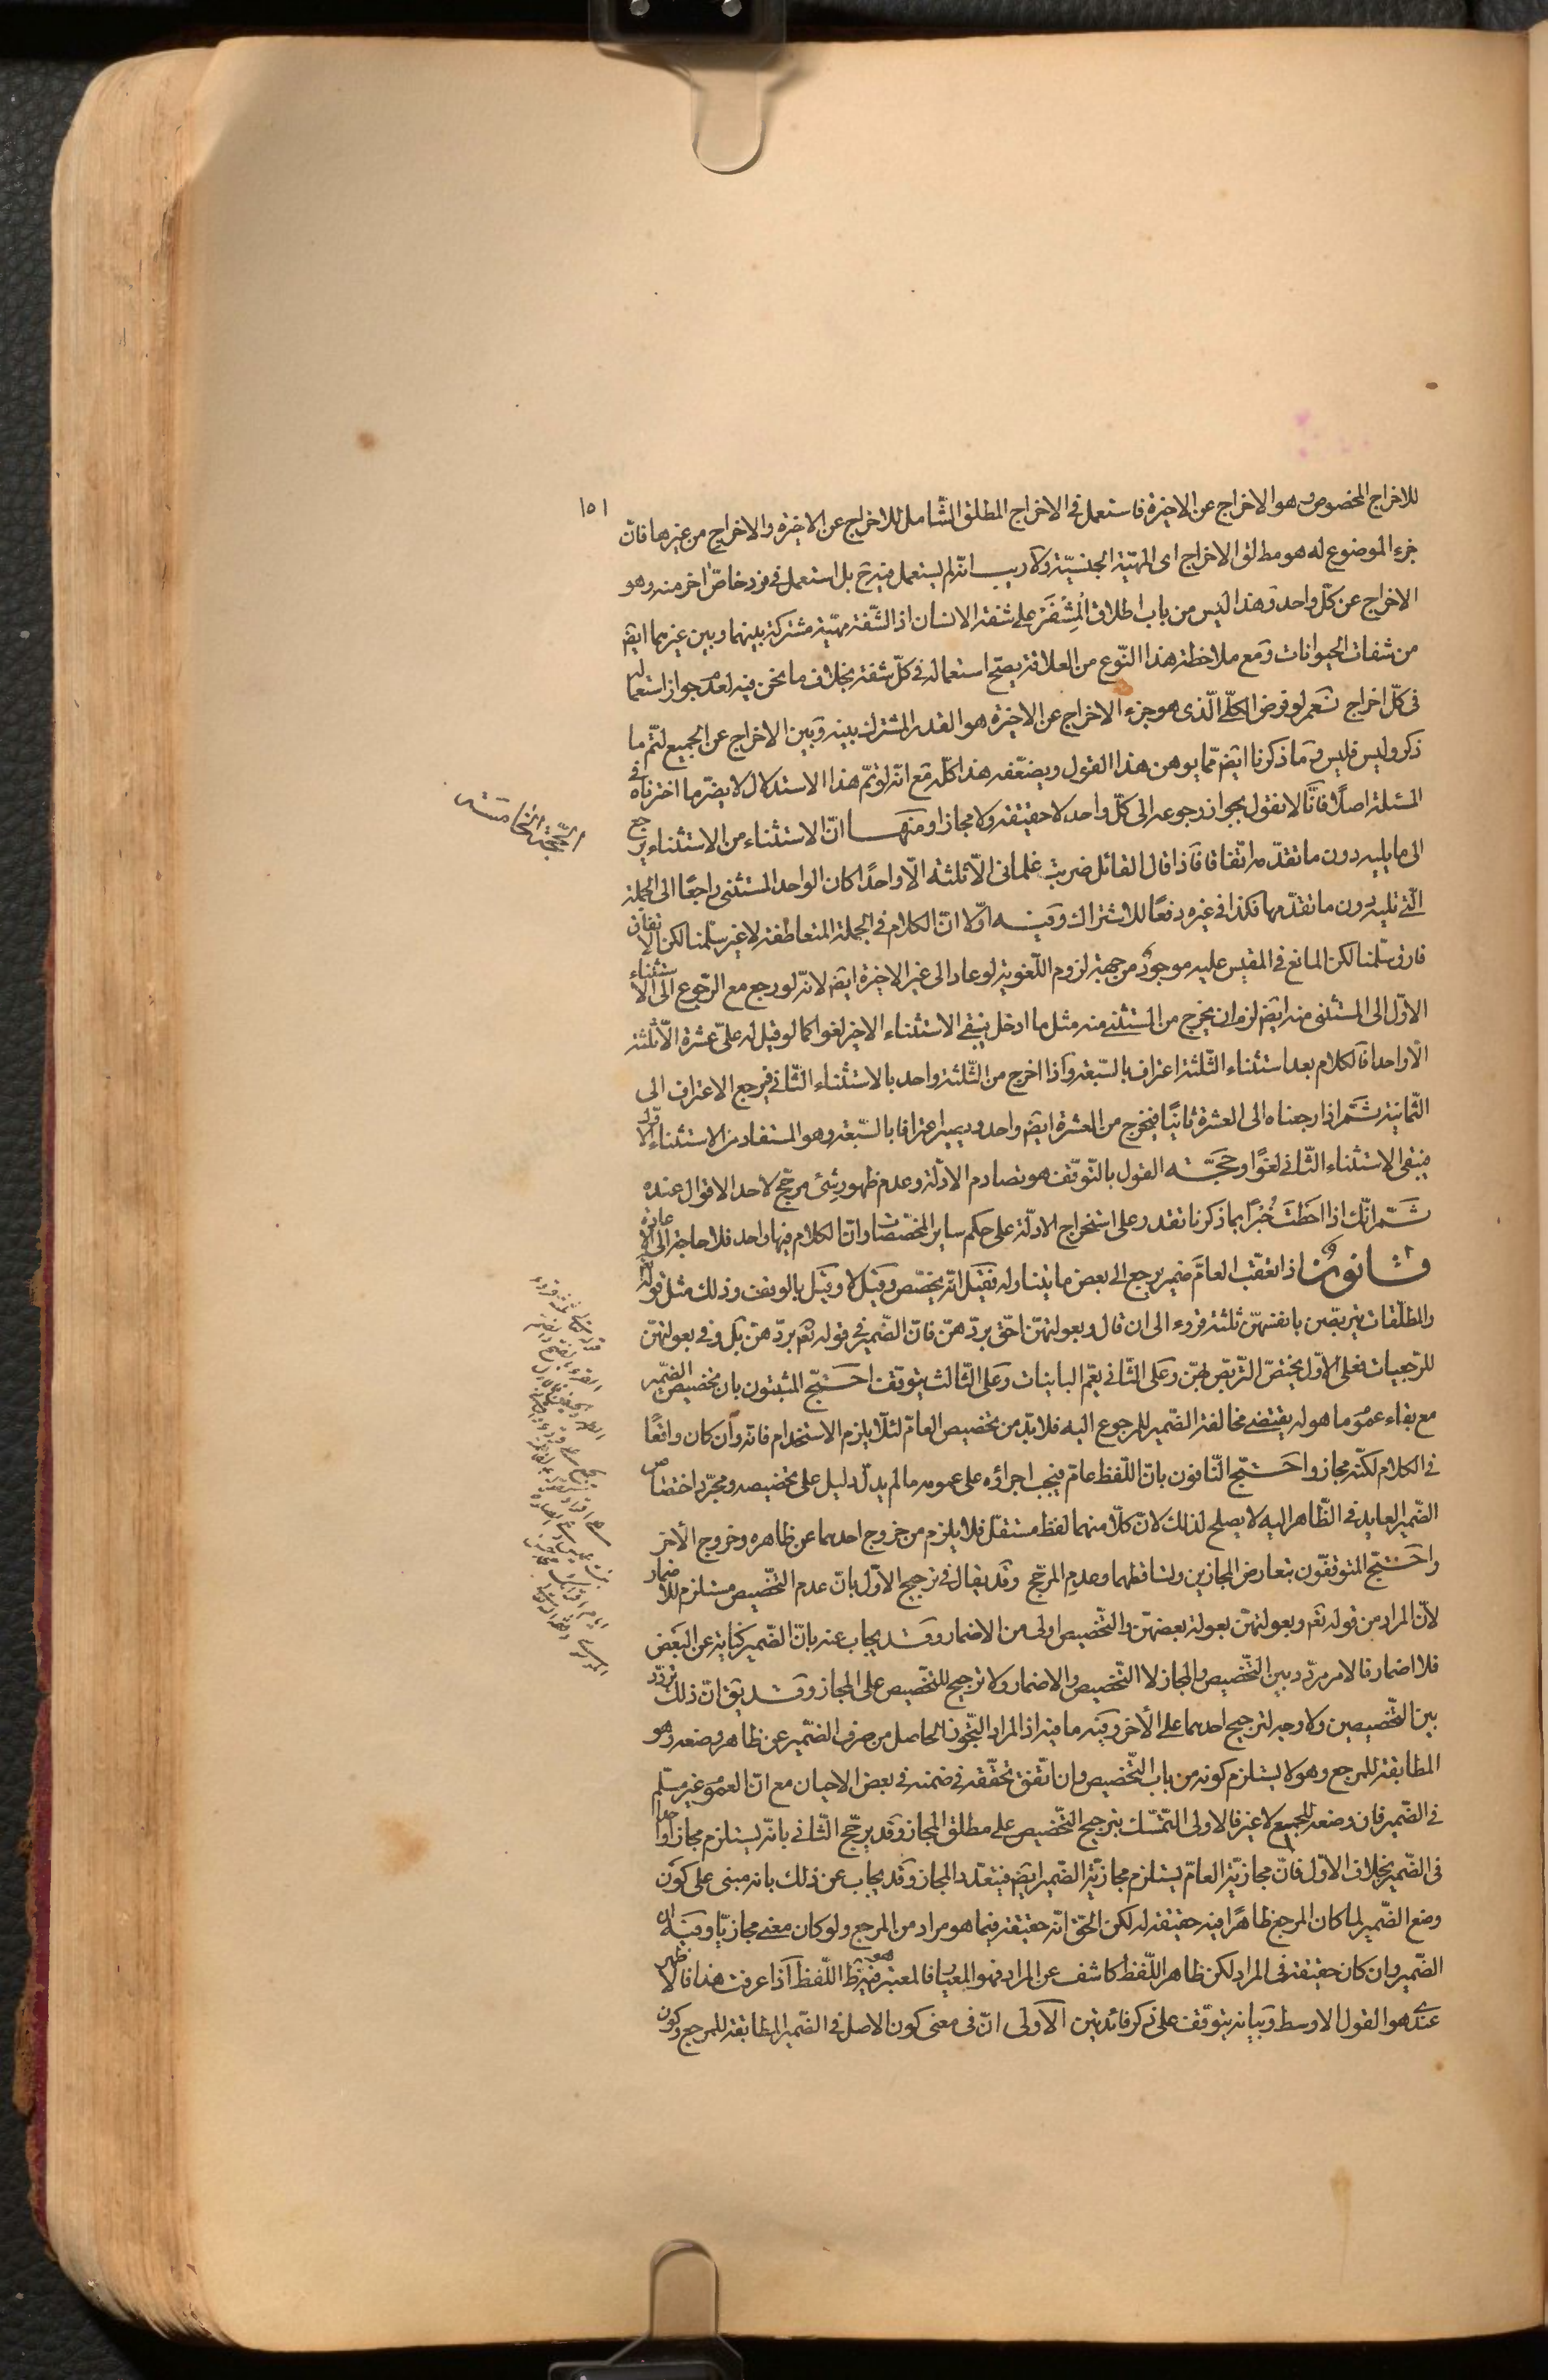 ١٥١
للاخراج المخصوص وهو الاخراج عن الاخيرة فاستعمل فى الاخراج المطلق الشامل للاخراج عن الاخيرة والاخراج من غيرها فان
جزء الموضوع له هو مطلق الاخراج اى المهيّة الجنسيّة ولا ريب انّه لم يستعمل فيه ح بل استعمل فى فرد خاصّ اخر منه وهو
الاخراج عن كلّ واحد وهذا ليس من باب اطلاق المِشْفَرْ على شفة الانسان اذ الشّفة مهيّة مشتركة بينهما وبين غيرهما ايضَ
من شفات الحيوانات ومع ملاحظة هذا النّوع من العلاقة يصحّ استعماله فى كلّ شفة بخلاف ما نحن فيه لعدم جواز استعماله
فى كلّ اخراج نعم لو فرض الكلّى الّذى هو جزء الاخراج عن الاخيرة هو القدر المشترك بينه وبين الاخراج عن الجميع لتمّ ما
ذكر وليس فليس وما ذكرنا ايضَ ممّا يوهن هذا القول ويضعّفه هذا كلّه مع انّه لو تمّ هذا الاستدلال لا يضرّ ما اخترناه فى
المسئلة اصلاً فانّا لا نقول بجواز رجوعه الى كلّ واحد لا حقيقة ولا مجازا ومنها انّ الاستثناء من الاستثناء يرجع
الحجّة الخامسة
الى ما يليه دون ما تقدّمه اتّفاقا فاذا قال القائل ضربت غلمانى الّا ثلثة الّا واحدًا كان الواحد المستثنى راجعًا الى الجملة
الّتى تليه دون ما تقدّمها فكذا فى غيره دفعًا للاشتراك وفيه اوّلا انّ الكلام فى الجملة المتعاطفة لا غير سلّمنا لكن الاتفاق
فارق سلّمنا لكن المانع فى المقيس عليه موجودٌ من جهة لزوم اللّغوية لو عاد الى غير الاخيرة ايضَ لانّه لو رجع مع الرّجوع الى الاستثناء
الاوّل الى المستثنى منه ايضَ لزم ان يخرج من المستثنى منه مثل ما ادخل فيبقى الاستثناء الاخير لغوا كما لو قيل له علىّ عشرة الّا ثلثة
الّا واحدا فالكلام بعد استثناء الثّلثة اعتراف بالسّبعة واذا اخرج من الثّلثة واحد بالاستثناء الثّانى فيرجع الاعتراف الى
الثّمانية ثمّ اذا رجعناه الى العشرة ثانيًا فيخرج من العشرة ايضَ واحد ويصير اعترافا بالسّبعة وهو المستفاد من الاستثناء الاوّل
فيبقى الاستثناء الثّانى لغوًا وحجّة القول بالتّوقّف هو تصادم الادلّة وعدم ظهور شئ مرجّح لاحد الاقوال عنده
ثمّ انّك اذا احَطتَ خُبْرًا بما ذكرنا تقدر على استخراج الادلّة على حكم ساير المخصّصات وانّ الكلام فيها واحد فلا حاجة الى الاعادة
قانونٌ اذا تعقّب العامّ ضمير يرجع الى بعض ما يتناوله فقيل انّه يخصّص وقيل لا وقيل بالوقف وذلك مثل قوله تعَ
والمطلّقات يتربّصن بانفسهنّ ثلثة قروء الى ان قال وبعولتهنّ احقّ بردّهنّ فانّ الضّمير فى قوله تعَ بردّهنّ بل وفى بعولتهنّ
للرّجعيات فعلى الاوّل يختصّ التّربّص بهنّ وعلى الثّانى يعمّ الباينات وعلى الثّالث يتوقف احتجّ المثبتون بان تخصيص الضّمير
مع بقاء عموم ما هو له يقتضى مخالفة الضّمير للمرجوع اليه فلا بدّ من تخصيص العامّ لئلّا يلزم الاستخدام فانه وان كان واقعًا
فى الكلام لكنّه مجاز واحتجّ النّافون بانّ اللّفظ عامّ فيجب اجراؤه على عمومه ما لم يدلّ دليل على تخصيصه ومجرّد اختصاص
الضّمير العايد فى الظّاهر اليه لا يصلح لذلك لانّ كلّا منهما لفظ مستقلّ فلا يلزم من خروج احدهما عن ظاهره وخروج الأخر
واحتجّ المتوقّفون بتعارض المجازين وتساقطهما وعدم المرجّح وقد يقال فى ترجيح الاوّل بانّ عدم التّخصيص مستلزم للاضمار
لانّ المراد من قوله تعَ وبعولتهنّ بعولة بعضهنّ والتّخصيص اولى من الاضمار وقد يجاب عنه بانّ الضّمير كناية عن البعض
فلا اضمار فالامر مردّد بين التّخصيص والمجاز لا التّخصيص والاضمار ولا ترجيح للتّخصيص على المجاز وقد يقَ انّ ذلك تردّد
بين التّخصيصين ولا وجه لترجيح احدهما على الأخر وفيه ما فيه اذ المراد التّجوز الحاصل من صرف الضّمير عن ظاهر وضعه وهو
المطابقة للمرجع وهو لا يستلزم كونه من باب التّخصيص وان اتّفق تحقّقه فى ضمنه فى بعض الاحيان مع انّ العموم غير مسلّم
فى الضّمير فان وضعه للجميع لا غير فالاولى التّمسّك بترجيح التّخصيص على مطلق المجاز وقد يرجّح الثّانى بانّه يستلزم مجازا واحدا
فى الضّمير بخلاف الاوّل فانّ مجازيّة العامّ يستلزم مجازيّة الضّمير ايضَ فيتعدّد المجاز وقد يجاب عن ذلك بانه مبنى على كون
وضع الضّمير لما كان المرجع ظاهرًا فيه حقيقة له لكن الحقّ انّه حقيقة فيما هو مراد من المرجع ولو كان معنى مجازيّا وفيه ان
الضّمير وان كان حقيقة فى المراد لكن ظاهر اللّفظ كاشف عن المراد فهو المعيار فالمعتبر هو ظَ اللّفظ اذا عرفت هذا فالاظهر
عندى هو القول الاوسط وبيانه يتوقّف على ذكر فائدتين الاولى انّ فى معنى كون الاصل فى الضّمير المطابقة للمرجع وكون